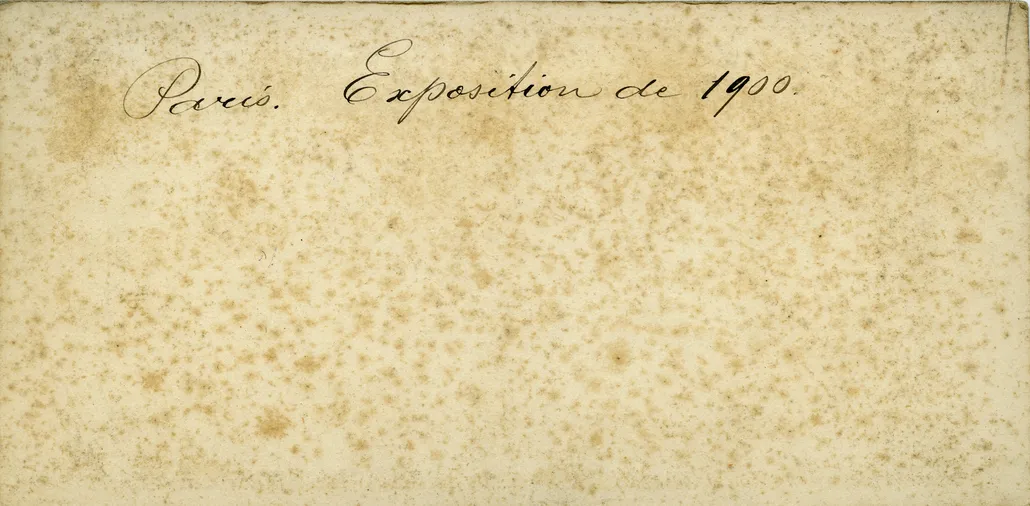 Paris. Exposition de 1900.